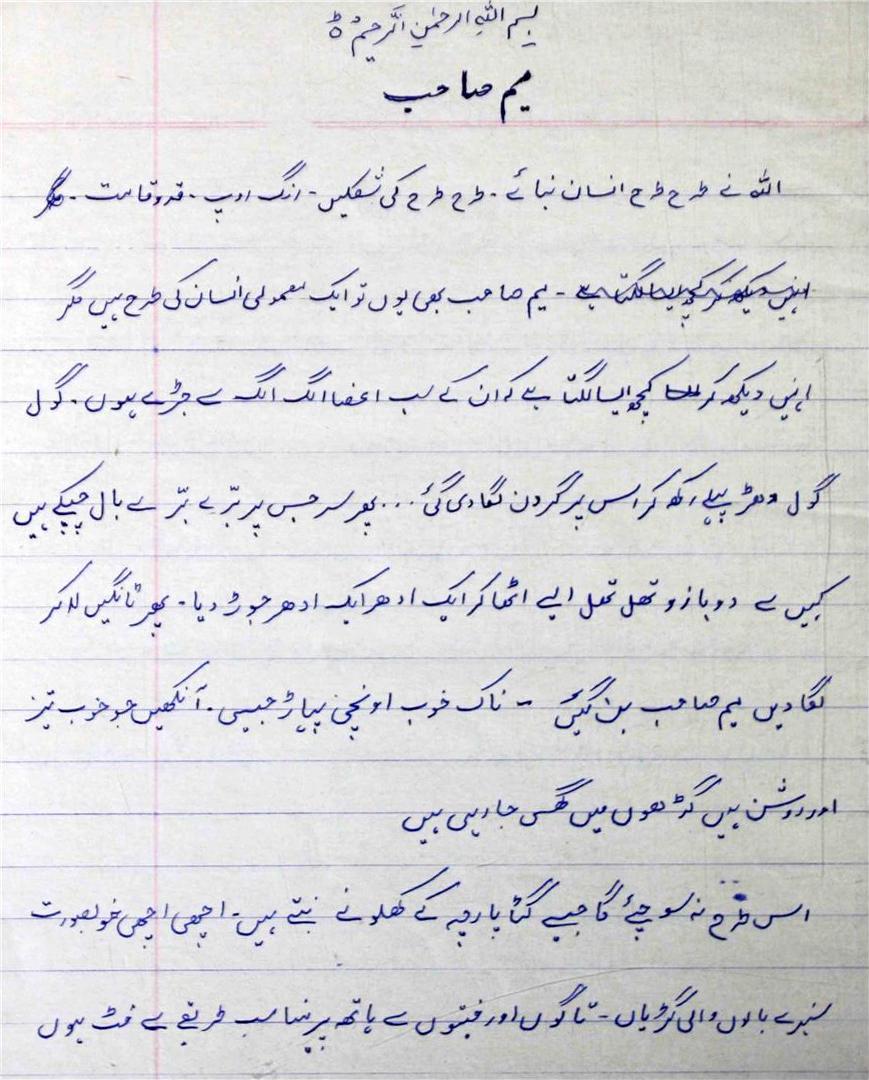 بسم اللہ الرحمٰن الرحیم ۵
میم صاحب
اللہ نے طرح طرح انسان بنائے - طرح طرح کی شکلیں - رنگ روپ - قدوقامت - مگر
انہیں دیکھ کر کچھ ایسا لگتا ہے - میم صاحب بھی یوں تو ایک معمولی انسان کی طرح ہیں مگر
انہیں دیکھ کر کچھ ایسا لگتا ہے کہ ان کے سب اعضا الگ الگ سے جڑے ہوں - گول
گول دھڑ پہلے رکھ کر اس پر گردن لگا دی گئی ... پھر سر جس پر بڑے بڑے بال چپکے ہیں
کہیں سے دو بازو تھل تھل ایسے اٹھا کر ایک ادھر ایک ادھر جوڑ دیا - پھر ٹانگیں لا کر
لگا دیں میم صاحب بن گئیں - ناک خوب اونچی پہاڑ جیسی - آنکھیں جو خوب تیز
اور روشن ہیں گڑھوں میں گھس جا رہی ہیں
اس طرح نہ سوچئے گا جیسے گٹا پارچہ کے کھلونے بنتے ہیں - اچھی اچھی خوبصورت
سنہرے بالوں والی گڑیاں - تاگوں اور فیتوں سے ہاتھ پیر مناسب طریقے سے فٹ ہوں